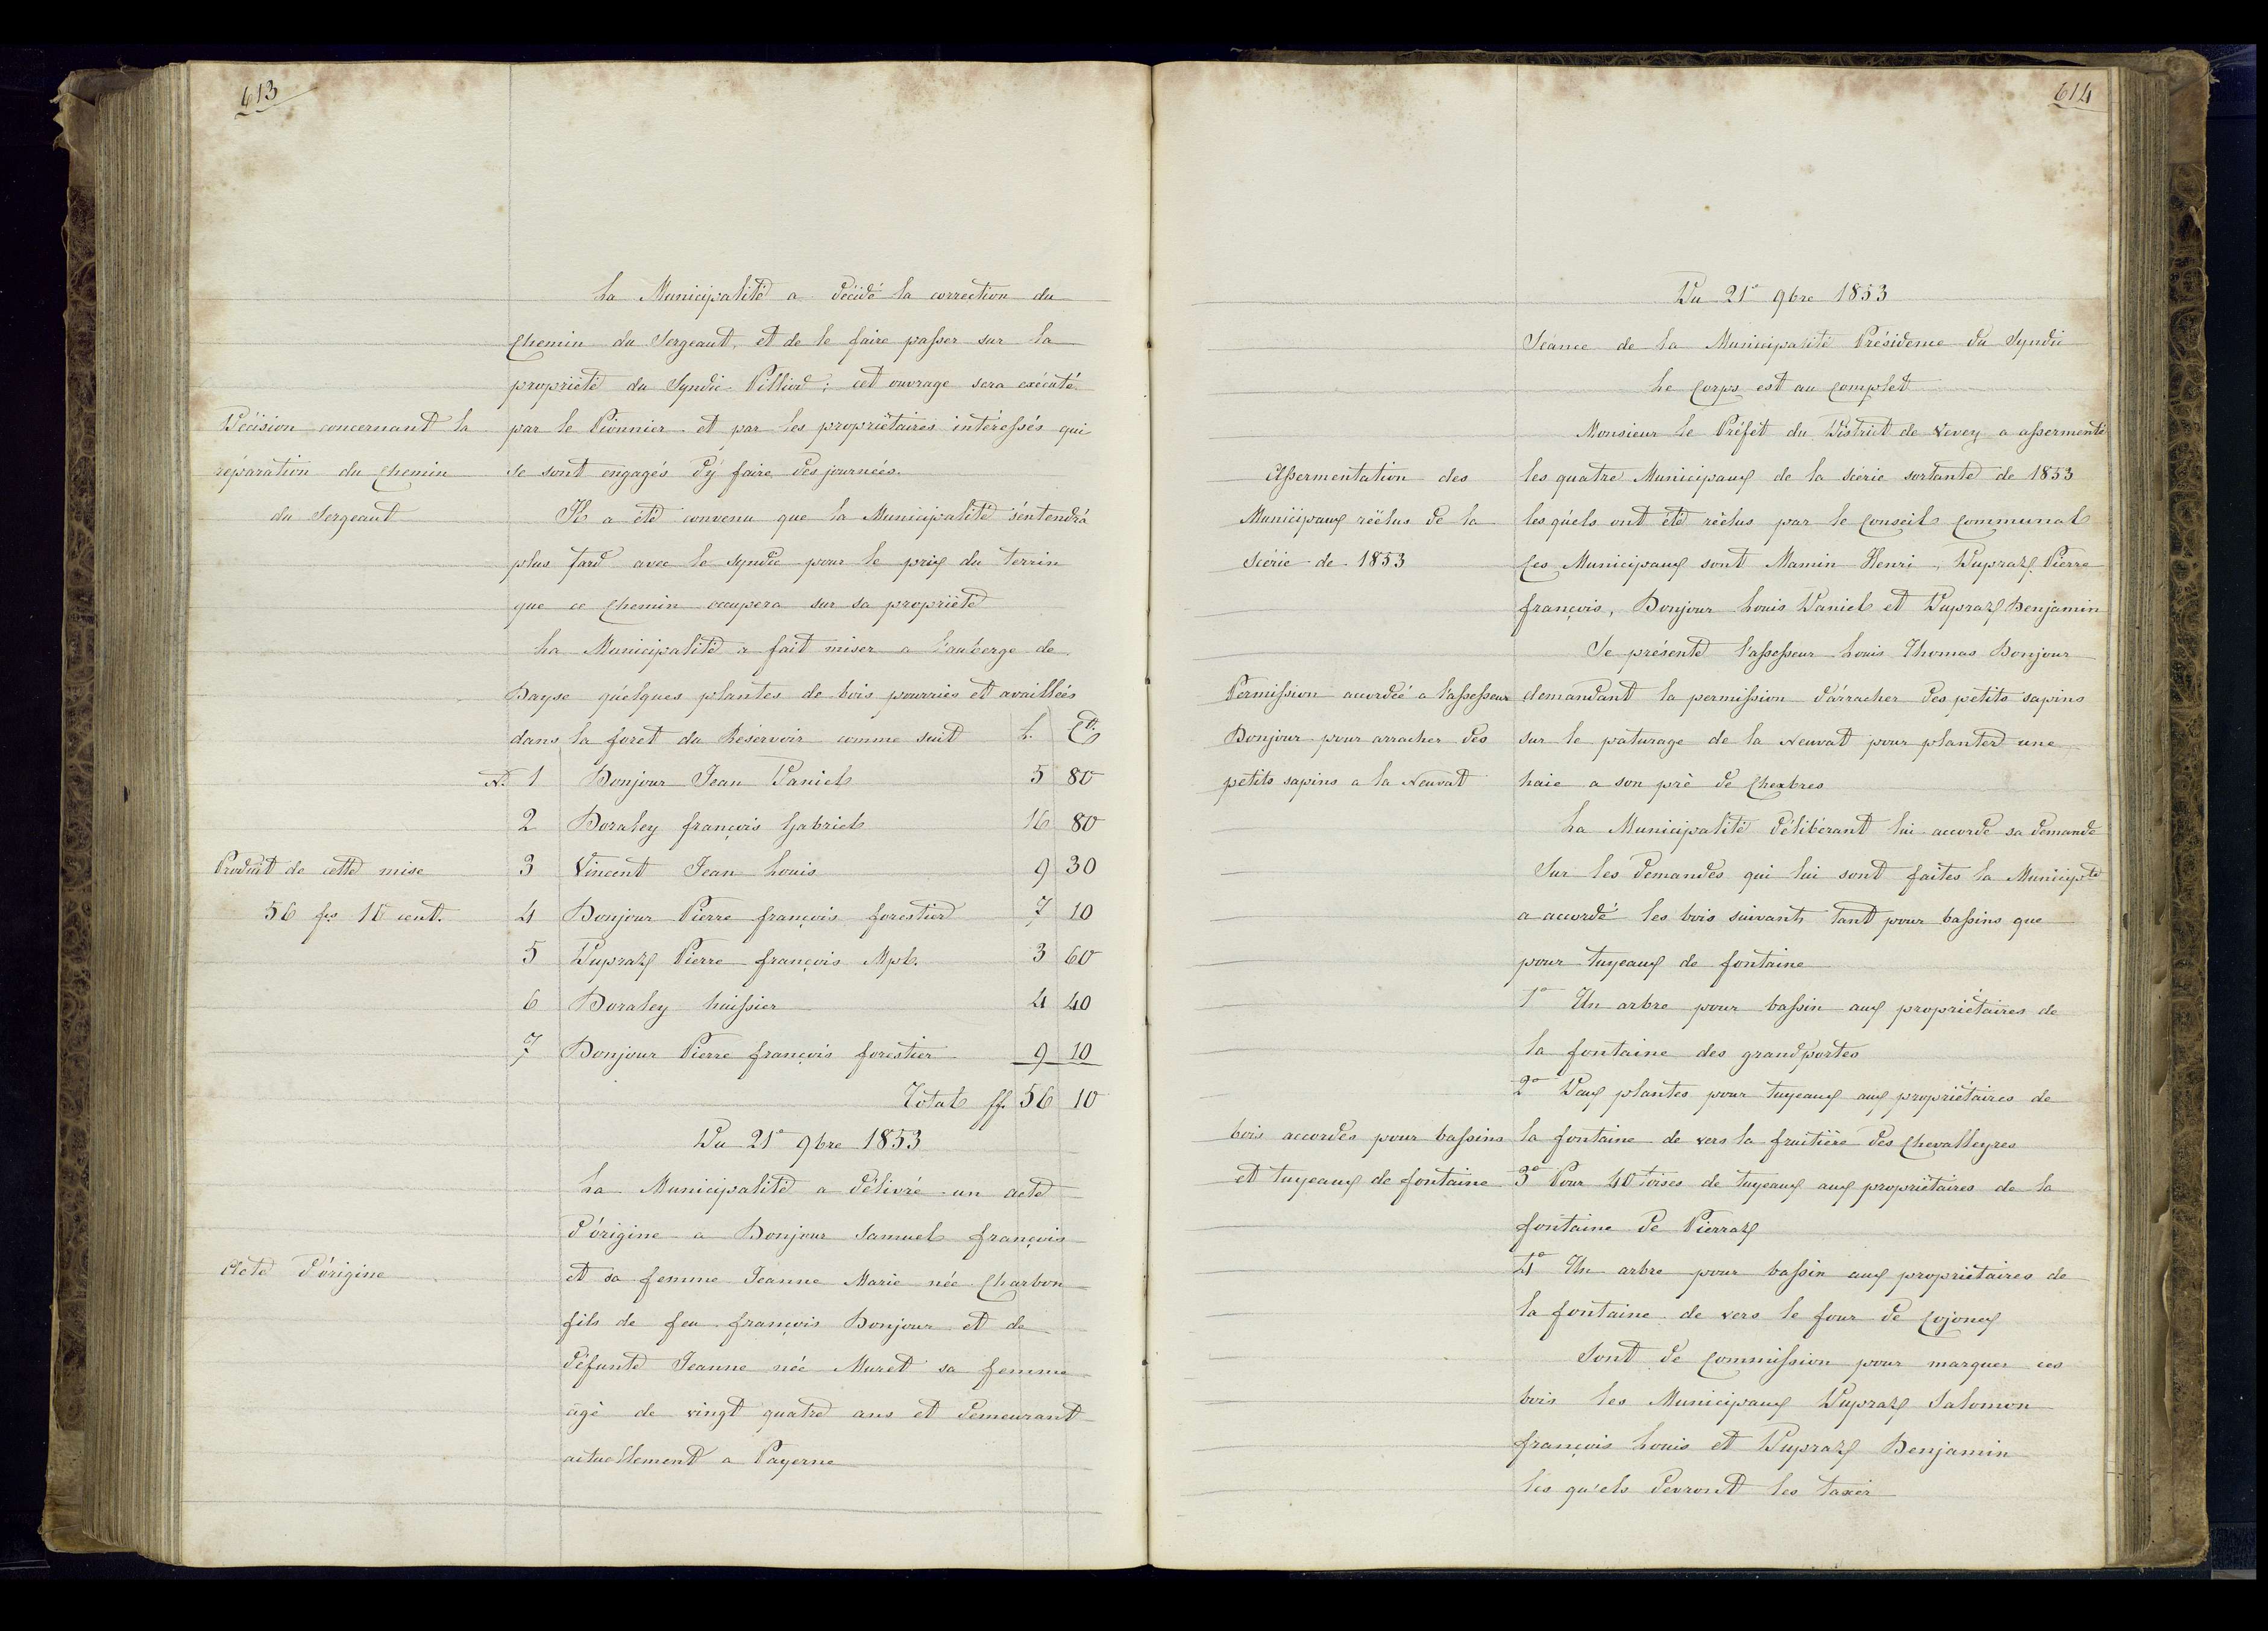 613
La Municipalité a décidé la correction du
Chemin du Sergeant, et de le faire passer sur la
propriété du Syndic Pilliod; cet ouvrage sera exécuté
Décision concernant la
par le Pionnier et par les propriétaires intéressés qui
réparation du Chemin
se sont engagés d'ÿ faire des journées.
du Sergeant
Il a été convenu que la Municipalité s'entendra
plus tard avec le Syndic pour le prix du terrin
que ce Chemin occupera sur sa propriété
La Municipalité a fait miser a l'auberge de
Bayse quélques plantes de bois pourries et availlées
dans la foret du Réservoir comme suit L. Ct.
N.º 1 Bonjour Jean Daniel 5 80
2 Doraley françois Gabriel 16 80
Produit de cette mise
3 Vincent Jean Louis 9 30
56 frs 10 cent.
4 Bonjour Pierre françois forestier 7 10
5 Dupraz Pierre françois Mpl. 3 60
6 Doraley huissier 4 40
7 Bonjour Pierre françois forestier 9 10
Total ff. 56 10
Du 21º 9bre 1853
La Municipalité a délivré un acte
d'origine a Bonjour Samuel françois
Acte d'origine
et sa femme Jeanne Marie née Charbon
fils de feu françois Bonjour et de
défunte Jeanne née Muret sa femme
âgé de vingt quatre ans et demeurant
actuéllement a Payerne
614
Du 21º 9bre 1853
Séance de la Municipalité Présidence du Syndic
Le Corps est au Complet
Monsieur le Préfet du District de Vevey a assermenté
Assermentation des
les quatre Municipaux de la Séerie sortante de 1853
Municipaux réelus de la
les quéls ont été réelus par le Conseil Communal
Séerie de 1853
Ces Municipaux sont Mamin Henri, Dupraz Pierre
françois, Bonjour Louis Daniel et Dupraz Benjamin
Se présente l'assesseur Louis Thomas Bonjour
Permission accordée a l'assesseur
demandant la permission d'arracher des petits sapins
Bonjour pour arracher des
sur le paturage de la Neuvat pour planter une
petits sapins a la Neuvat
haie a son pré de Chexbres
La Municipalité délibérant lui accorde sa demande
Sur les demandes qui lui sont faites la Municipté
a accordé les bois suivants tant pour bassins que
pour tuyeaux de fontaine
1º Un arbre pour bassin aux propriétaires de
la fontaine des grandportes
2º Daux plantes pour tuyeaux aux propriétaires de
bois accordés pour bassins
la fontaine de vers la fruitière des Chevalleyres
et tuyeaux de fontaine
3º Pour 40 toises de tuyeaux aux propriétaires de la
fontaine de Pierraz
4º Un arbre pour bassin aux propriétaires de
la fontaine de vers le four de Cojonex
Sont de Commission pour marquer ces
bois les Municipaux Dupraz Salomon
françois Louis et Dupraz Benjamin
les qu'els devront les taxer